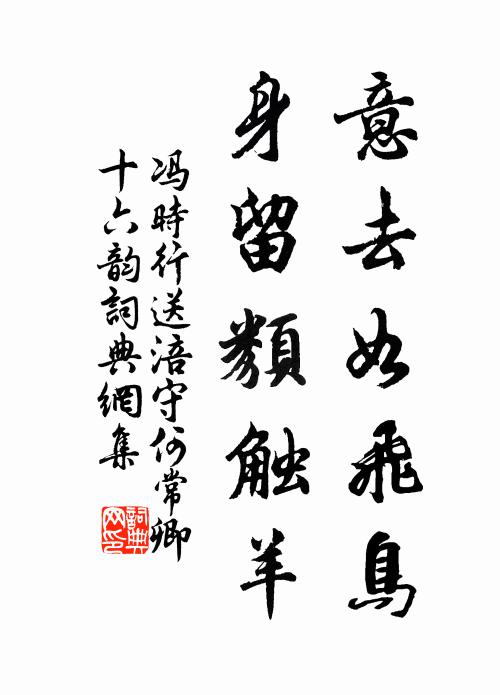 意去如飛鳥
身留類触羊
冯時行送涪守何常卿
十六韵詞典網集
詞典
网印